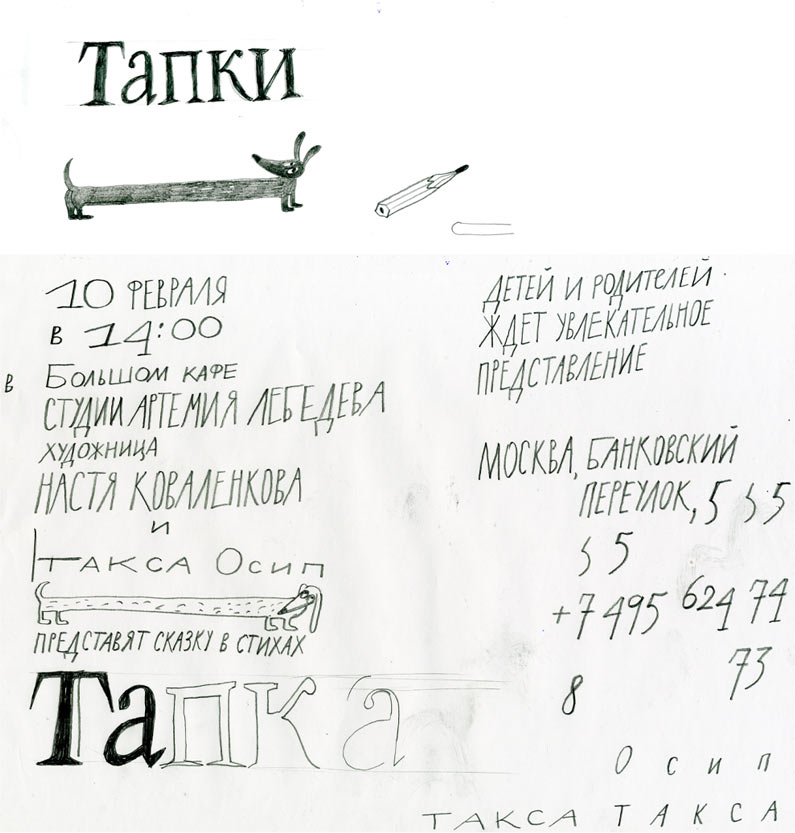 Тапки
10 ФЕВРАЛЯ
В 14:00
В БОЛЬШОМ КАФЕ
СТУДИИ АРТЕМИЯ ЛЕБЕДЕВА
ХУДОЖНИЦА
НАСТЯ КОВАЛЕНКОВА
И
ТАКСА ОСИП
ПРЕДСТАВЯТ СКАЗКУ В СТИХАХ
Тапка
ДЕТЕЙ И РОДИТЕЛЕЙ
ЖДЕТ УВЛЕКАТЕЛЬНОЕ
ПРЕДСТАВЛЕНИЕ
МОСКВА, БАНКОВСКИЙ
ПЕРЕУЛОК, 5 5
5
+7 495 624 74
73
8
Осип
ТАКСА ТАКСА